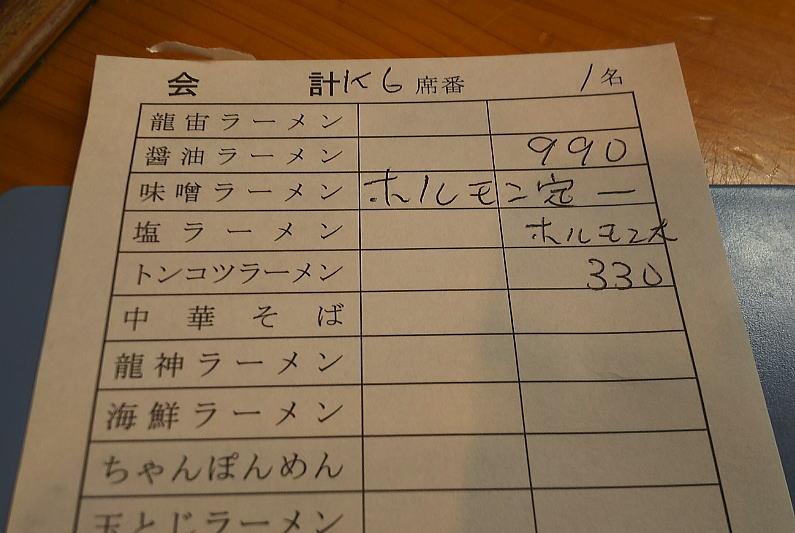 会 計 K6 席番 1名
龍宙ラーメン
醤油ラーメン 990
味噌ラーメン ホルモン定 一
塩ラーメン ホルモン大
トンコツラーメン 330
中華そば
龍神ラーメン
海鮮ラーメン
ちゃんぽんめん
玉とじラーメン